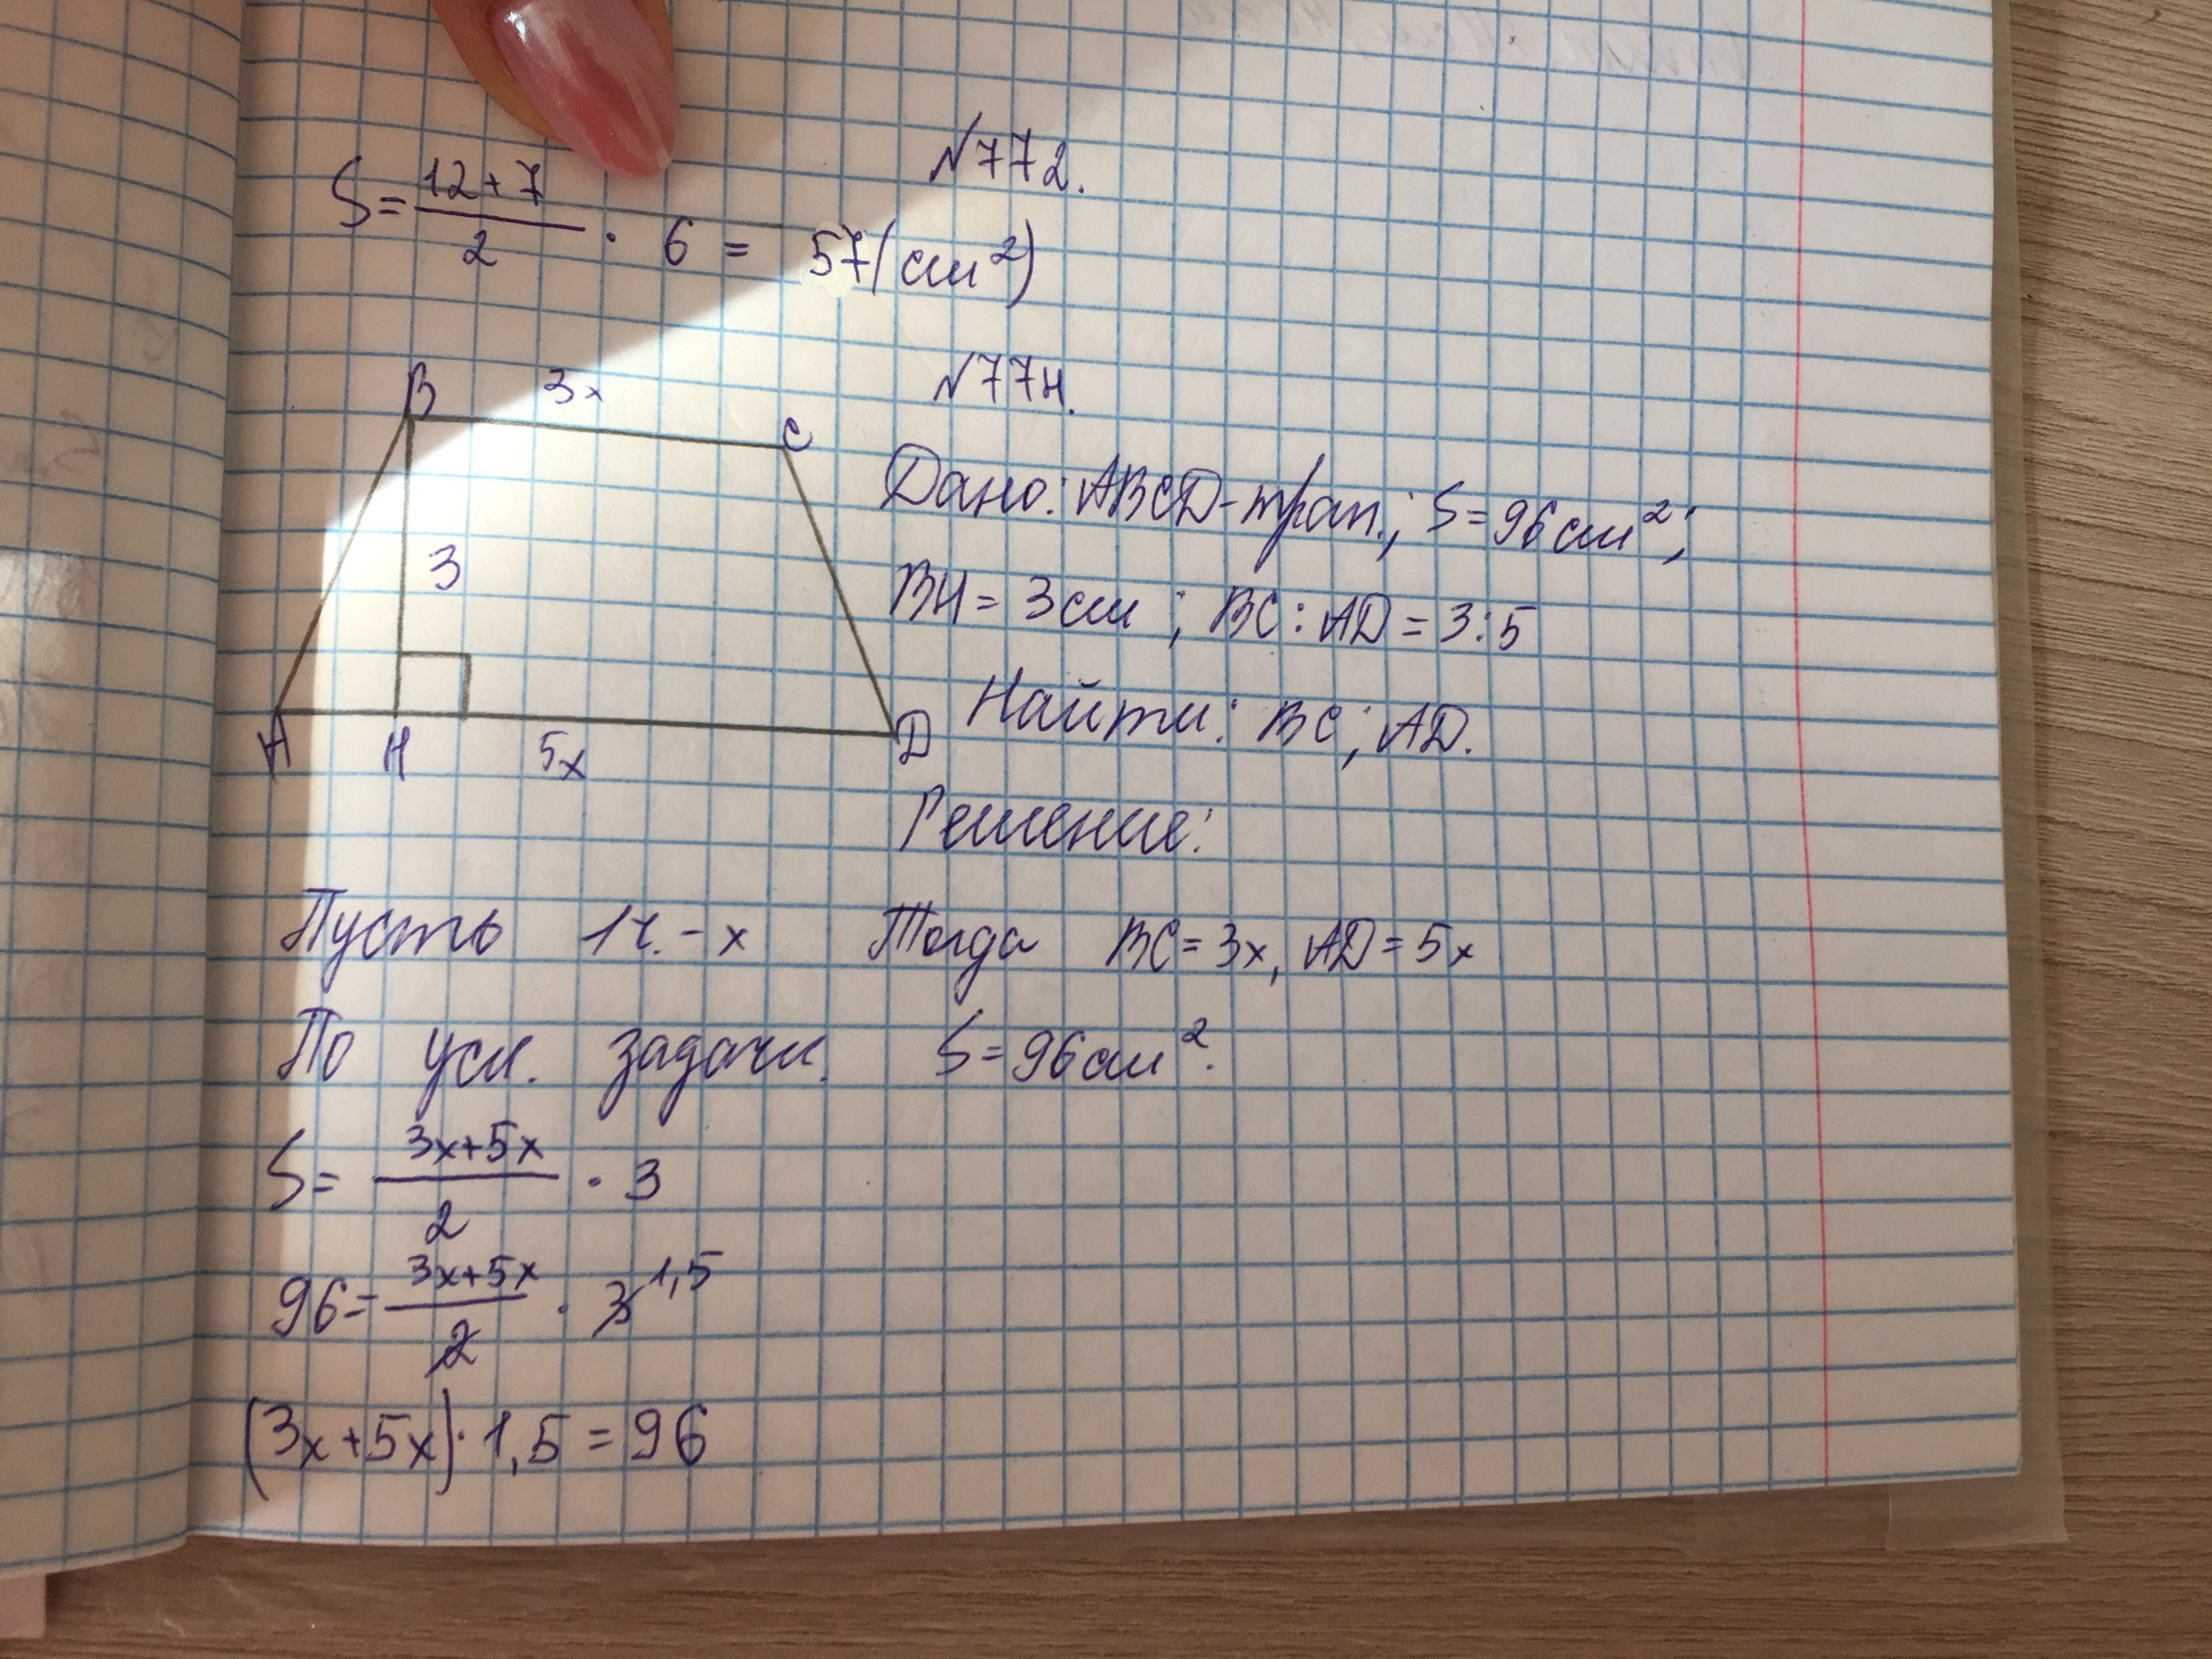 №772.
S = 12+7 / 2 · 6 = 57(см²)
№774.
B 3x C
3
A H 5x D
Дано: ABCD-трап.; S=96см²;
BH = 3см ; BC : AD = 3:5
Найти: BC; AD.
Решение:
Пусть 1ч. - x Тогда BC = 3x, AD = 5x
По усл. задачи. S = 96см².
S = 3x+5x / 2 · 3
96 = 3x+5x / 2 · 3 1,5
(3x+5x) · 1,5 = 96